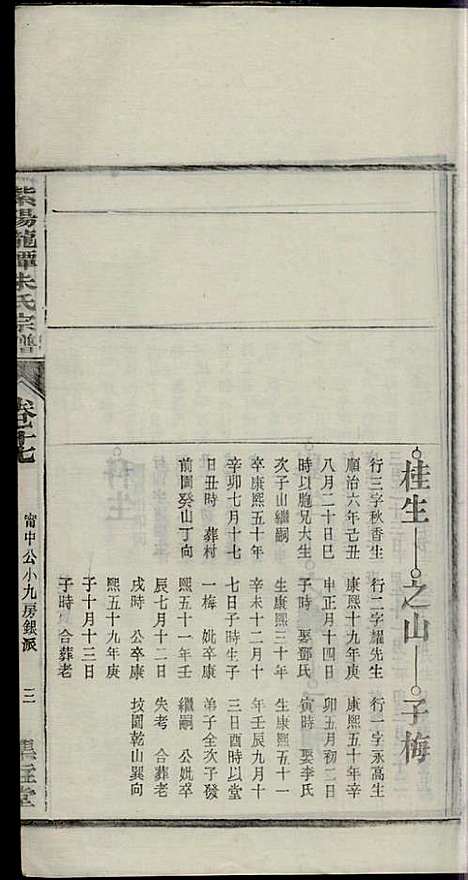 桂生 之山 子梅
行三字秋香生
順治六年己丑
八月二十日巳
時以胞兄大生
次子山繼嗣
卒康熙五十年
辛卯七月十七
日丑時 葬村
前園癸山丁向
行二字耀先生
康熙十九年庚
申正月十四日
子時 娶鄧氏
生康熙三十年
辛未十二月十
七日子時生子
一梅 妣卒康
熙五十一年壬
辰七月十二日
戌時 公卒康
熙五十九年庚
子十月十三日
子時 合葬老
行一字永高生
康熙五十年辛
卯五月初二日
寅時 娶李氏
生康熙五十一
年壬辰九月十
三日酉時以堂
弟子全次子發
繼嗣 公妣卒
失考 合葬老
坟園乾山巽向
紫陽龍譚朱氏宗譜
卷之十七
甯中公小九房銀派
三
堂